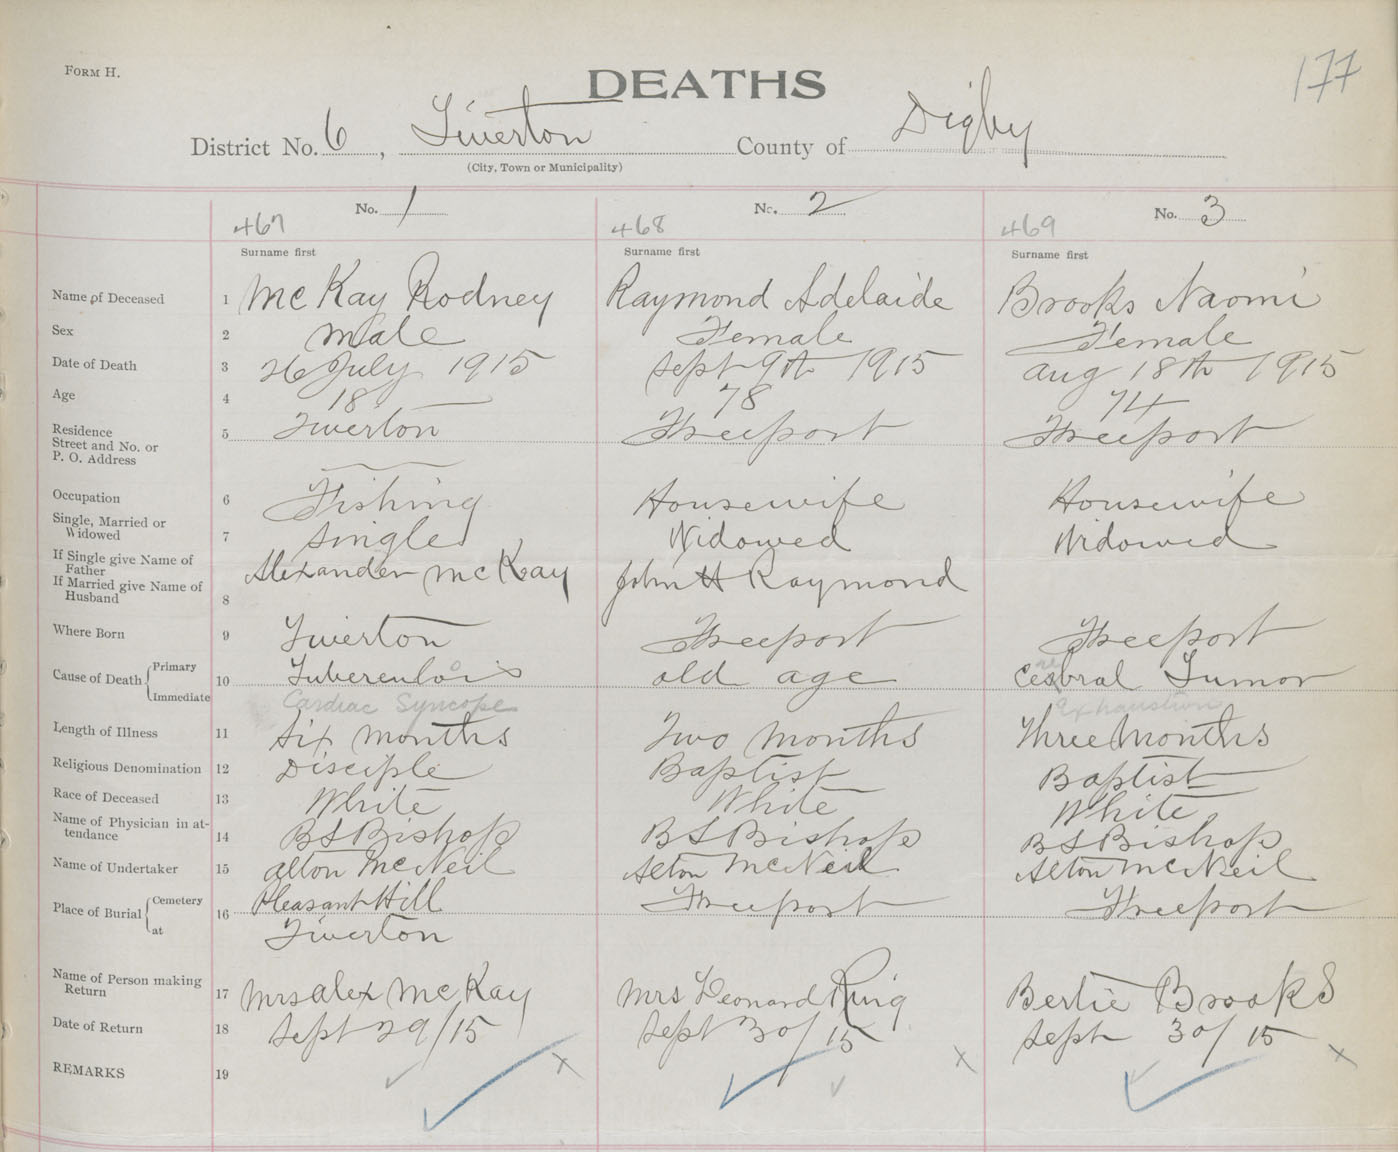 FORM H.
DEATHS
177
District No. 6, Tiverton County of Digby
(City, Town or Municipality)
No. 1 No. 2 No. 3
467 468 469
Surname first Surname first Surname first
Name of Deceased 1 McKay Rodney Raymond Adelaide Brooks Naomi
Sex 2 male Female Female
Date of Death 3 26 July 1915 Sept 9th 1915 aug 18th 1915
Age 4 18 78 74
Residence
Street and No. or
P. O. Address 5 Tiverton Freeport Freeport
Occupation 6 Fishing Housewife Housewife
Single, Married or
Widowed 7 Single Widowed Widowed
If Single give Name of
Father
If Married give Name of
Husband 8 Alexander McKay John H Raymond
Where Born 9 Tiverton Freeport Freeport
Cause of Death Primary
Immediate 10 Tuberculosis old age Cerebral Tumor
Cardiac Syncope exhaustion
Length of Illness 11 Six months Two months Three months
Religious Denomination 12 Disciple Baptist Baptist
Race of Deceased 13 White White White
Name of Physician in at-
tendance 14 BS Bishop BS Bishop BS Bishop
Name of Undertaker 15 Alton McNeil Alton McNeil Alton McNeil
Place of Burial Cemetery
at 16 Pleasant Hill Freeport Freeport
Tiverton
Name of Person making
Return 17 Mrs alex McKay Mrs Leonard Ring Bertie Brooks
Date of Return 18 Sept 29/15 Sept 30/15 Sept 30/15
REMARKS 19